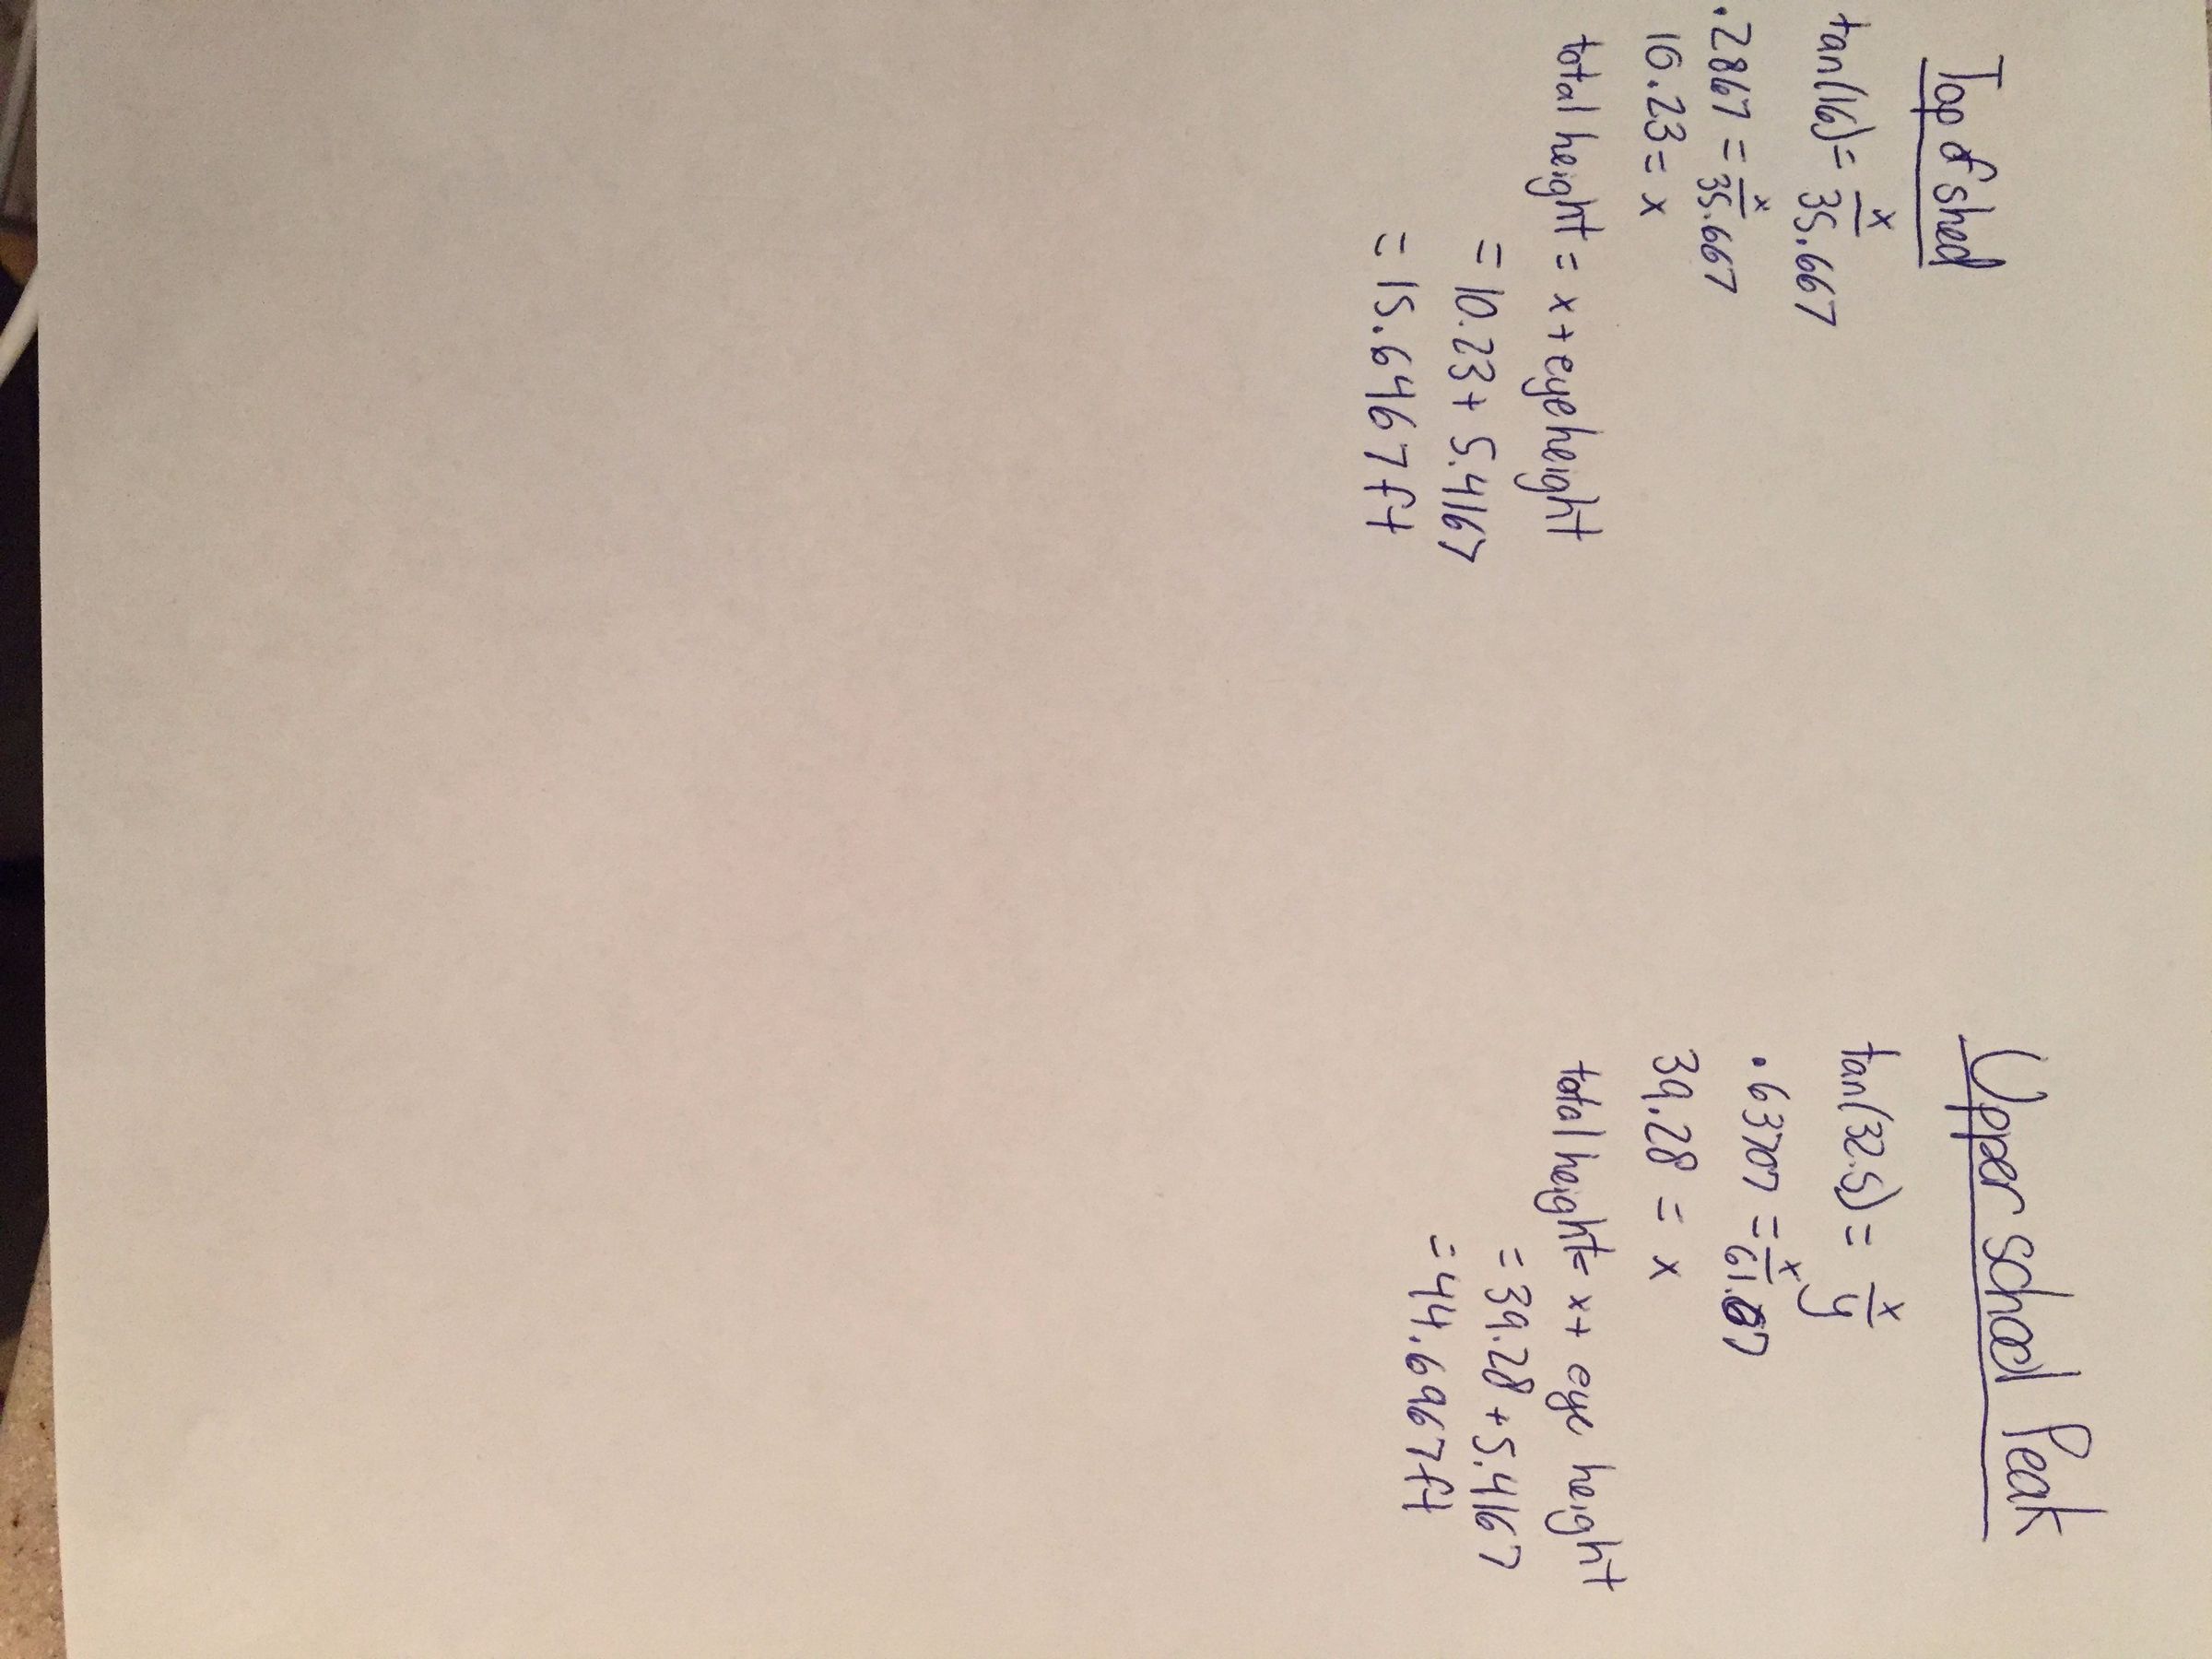 Top of shed
tan(16) = x/35.667
.2867 = x/35.667
10.23 = x
total height = x + eye height
= 10.23 + 5.4167
= 15.6467 ft
Upper school Peak
tan(32.5) = x/y
.63707 = x/61.67
39.28 = x
total height = x + eye height
= 39.28 + 5.4167
= 44.6967 ft